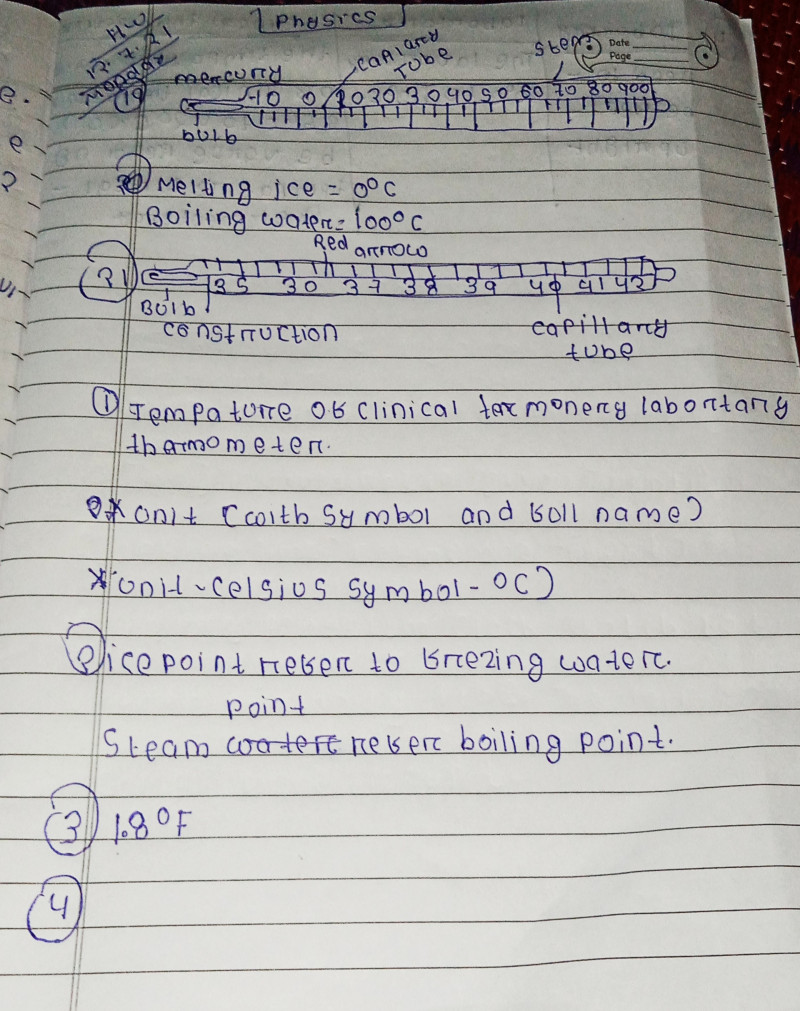 Physics
H.W
12.7.21
Monday
Date
Page
19
mercury
capilary
Tube
-10 0 10 20 30 40 50 60 70 80 90 0
bulb
20 Melting ice = 0°C
Boiling water = 100°C
Red arrow
21
35 30 37 38 39 40 41 42
Bulb
construction
capillary
tube
1 Tempature of clinical termonery labortary
thermometer.
* Unit (with symbol and full name)
* Unit - Celsius symbol - °C)
2 ice point refer to freezing water.
point
Steam water refer boiling point.
3 1.8°F
4